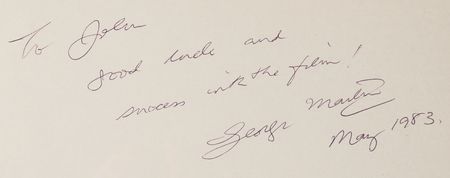 To John
good luck and
success with the film!
George Martin
May 1983.